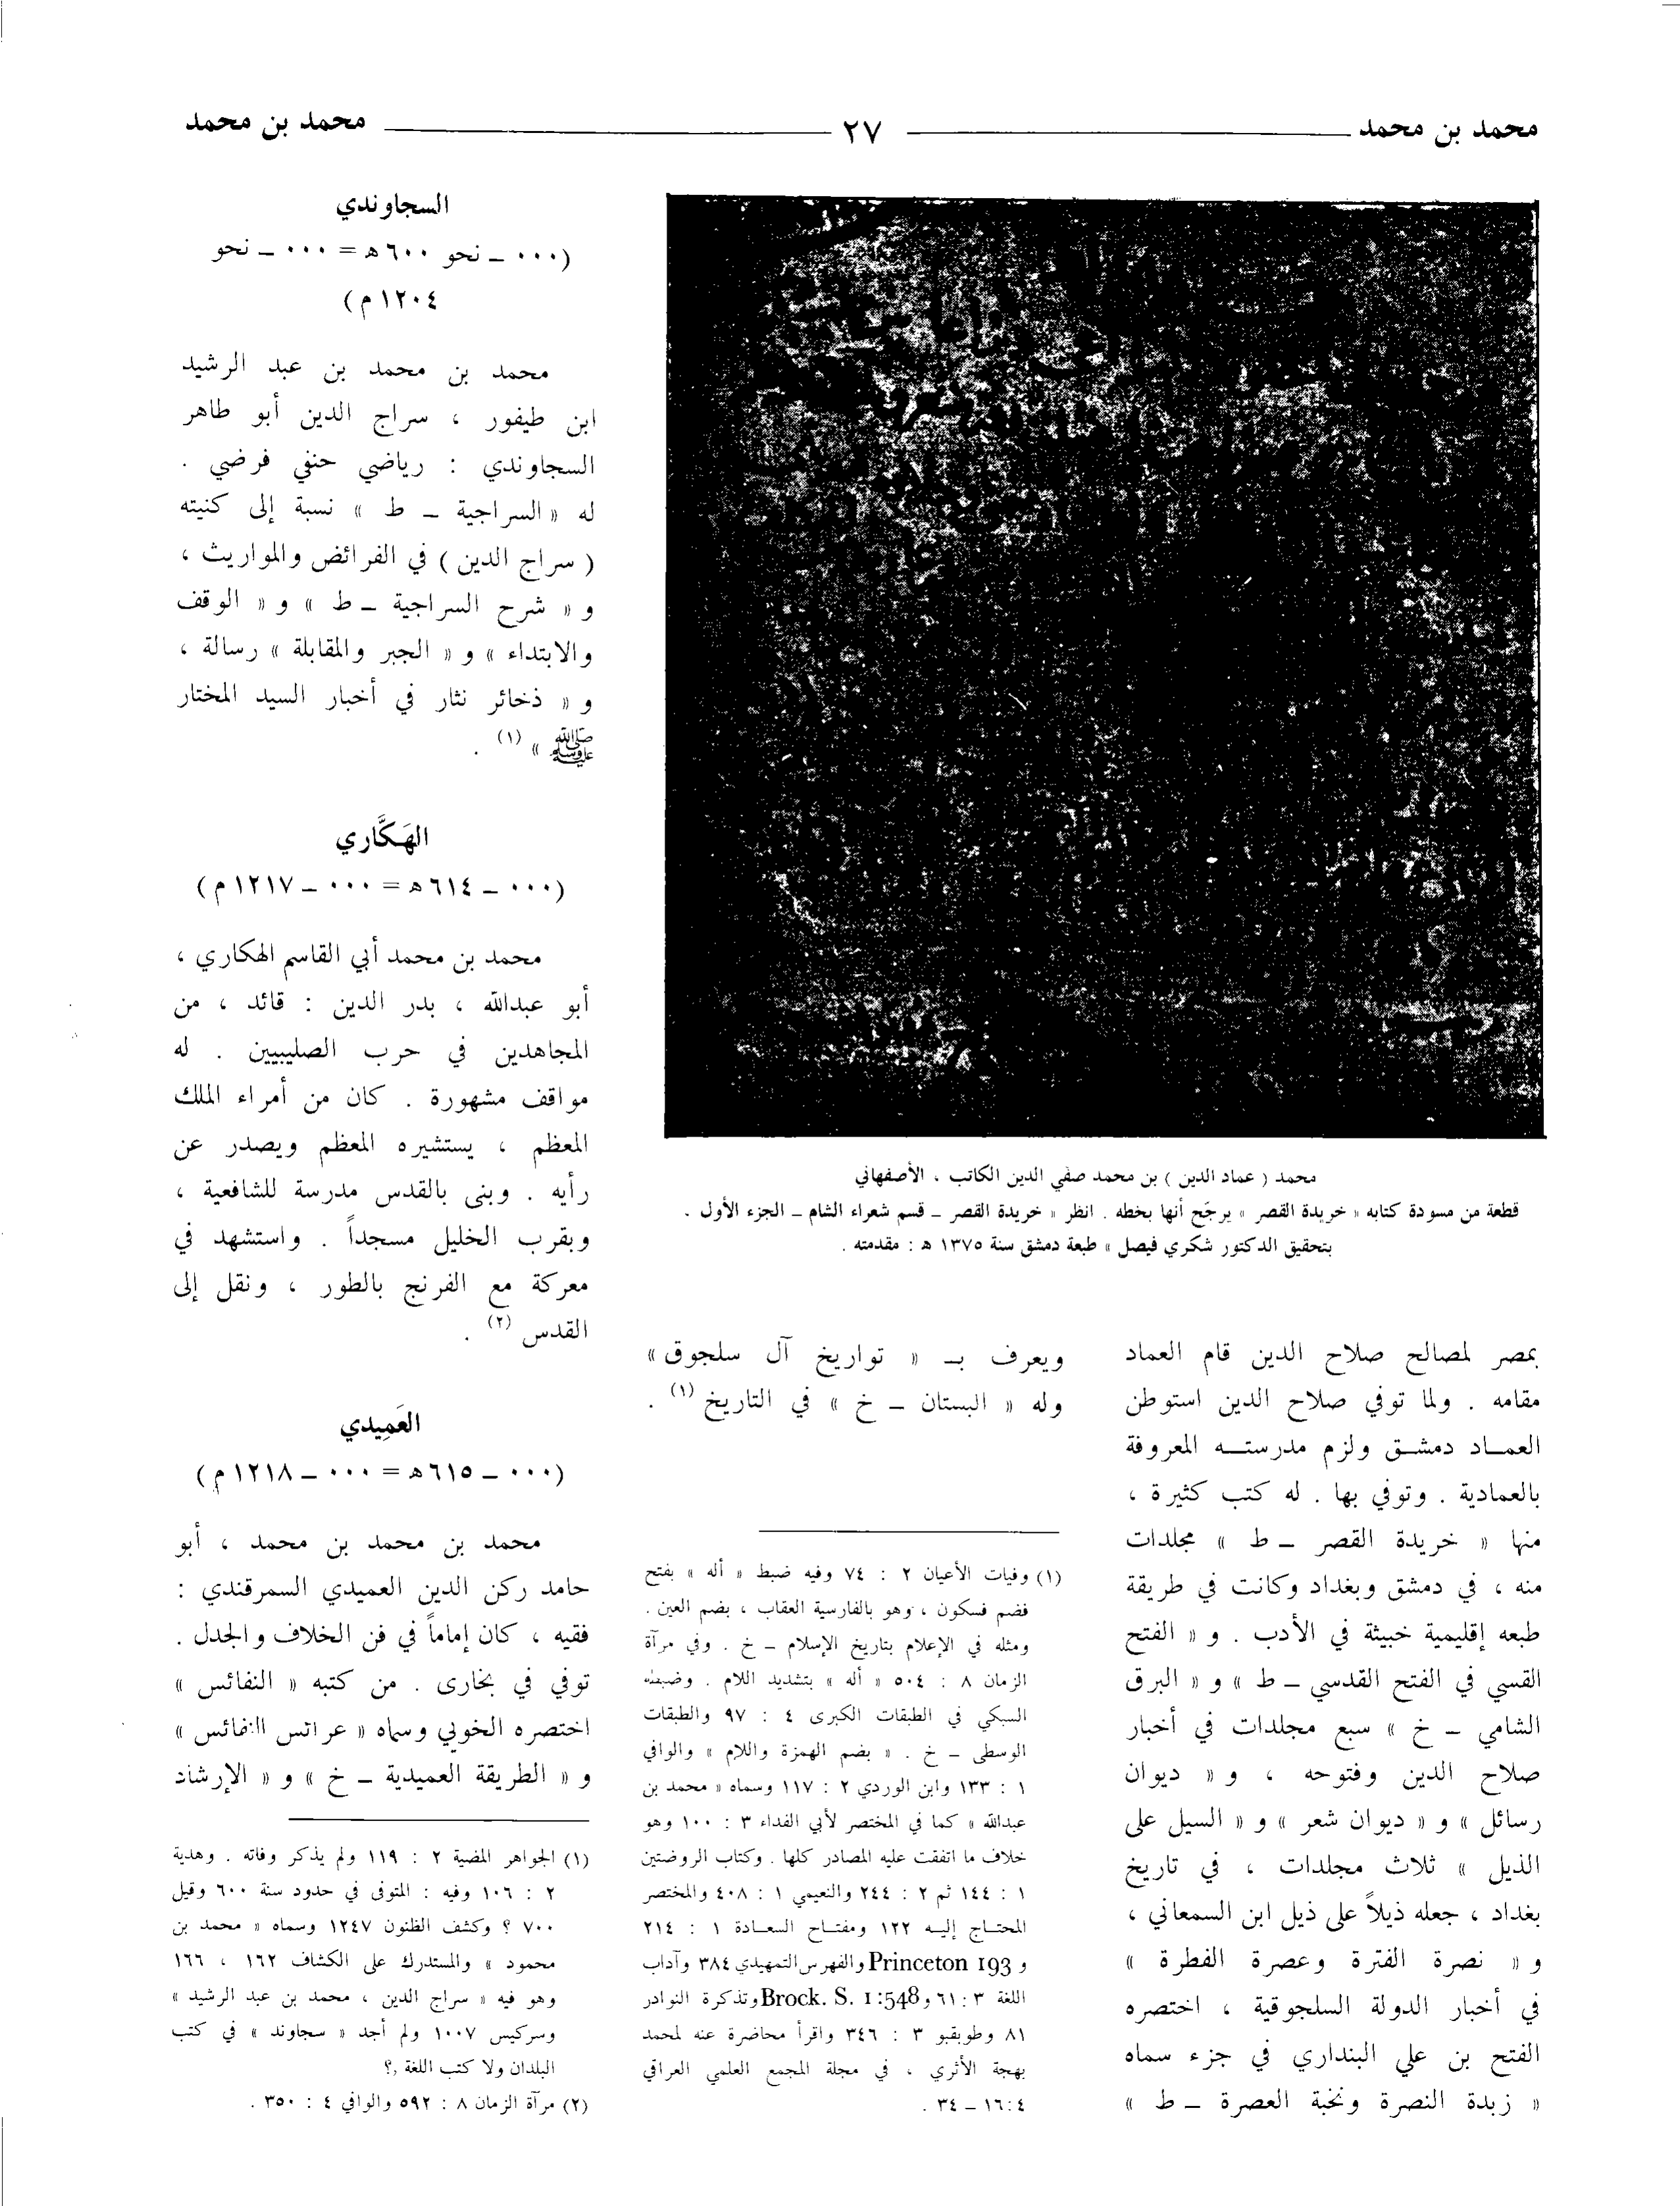 محمد بن محمد ٢٧ محمد بن محمد
محمد ( عماد الدين ) بن محمد صفي الدين الكاتب ، الأصفهاني
قطعة من مسودة كتابه « خريدة القصر » يرجّح أنها بخطه . انظر « خريدة القصر – قسم شعراء الشام – الجزء الأول .
بتحقيق الدكتور شكري فيصل » طبعة دمشق سنة ١٣٧٥ ه : مقدمته .
بمصر لمصالح صلاح الدين قام العماد
مقامه . ولما توفي صلاح الدين استوطن
العمـاد دمشـق ولزم مدرستـه المعروفة
بالعمادية . وتوفي بها . له كتب كثيرة ،
منها « خريدة القصر – ط » مجلدات
منه ، في دمشق وبغداد وكانت في طريقة
طبعه إقليمية خبيثة في الأدب . و « الفتح
القسي في الفتح القدسي – ط » و « البرق
الشامي – خ » سبع مجلدات في أخبار
صلاح الدين وفتوحه ، و « ديوان
رسائل » و « ديوان شعر » و « السيل على
الذيل » ثلاث مجلدات ، في تاريخ
بغداد ، جعله ذيلاً على ذيل ابن السمعاني ،
و « نصرة الفترة وعصرة الفطرة »
في أخبار الدولة السلجوقية ، اختصره
الفتح بن علي البنداري في جزء سماه
« زبدة النصرة ونخبة العصرة – ط »
ويعرف بـ « تواريخ آل سلجوق »
وله « البستان – خ » في التاريخ (١) .
(١) وفيات الأعيان ٢ : ٧٤ وفيه ضبط « أله » بفتح
فضم فسكون ، وهو بالفارسية العقاب ، بضم العين .
ومثله في الإعلام بتاريخ الإسلام – خ . وفي مرآة
الزمان ٨ : ٥٠٤ « أله » بتشديد اللام . وضبطه
السبكي في الطبقات الكبرى ٤ : ٩٧ والطبقات
الوسطى – خ . « بضم الهمزة واللام » والوافي
١ : ١٣٣ وابن الوردي ٢ : ١١٧ وسماه « محمد بن
عبدالله » كما في المختصر لأبي الفداء ٣ : ١٠٠ وهو
خلاف ما اتفقت عليه المصادر كلها . وكتاب الروضتين
١ : ١٤٤ ثم ٢ : ٢٤٤ والنعيمي ١ : ٤٠٨ والمختصر
المحتـاج إليـه ١٢٢ ومفتـاح السعـادة ١ : ٢١٤
و Princeton 193 والفهرس التمهيدي ٣٨٤ وآداب
اللغة ٣ : ٦١ و Brock. S. 1:548 وتذكرة النوادر
٨١ وطوبقبو ٣ : ٣٤٦ واقرأ محاضرة عنه لمحمد
بهجة الأثري ، في مجلة المجمع العلمي العراقي
٤ : ١٦ – ٣٤ .
السجاوندي
(٠٠٠ – نحو ٦٠٠ ه = ٠٠٠ – نحو
١٢٠٤ م)
محمد بن محمد بن عبد الرشيد
ابن طيفور ، سراج الدين أبو طاهر
السجاوندي : رياضي حنفي فرضي .
له « السراجية – ط » نسبة إلى كنيته
( سراج الدين ) في الفرائض والمواريث ،
و « شرح السراجية – ط » و « الوقف
والابتداء » و « الجبر والمقابلة » رسالة ،
و « ذخائر نثار في أخبار السيد المختار
ﷺ » (١) .
الهَكَّاري
(٠٠٠ – ٦١٤ ه = ٠٠٠ – ١٢١٧ م)
محمد بن محمد أبي القاسم الهكاري ،
أبو عبدالله ، بدر الدين : قائد ، من
المجاهدين في حرب الصليبيين . له
مواقف مشهورة . كان من أمراء الملك
المعظم ، يستشيره المعظم ويصدر عن
رأيه . وبنى بالقدس مدرسة للشافعية ،
وبقرب الخليل مسجداً . واستشهد في
معركة مع الفرنج بالطور ، ونقل إلى
القدس (٢) .
العَمِيدي
(٠٠٠ – ٦١٥ ه = ٠٠٠ – ١٢١٨ م)
محمد بن محمد بن محمد ، أبو
حامد ركن الدين العميدي السمرقندي :
فقيه ، كان إماماً في فن الخلاف والجدل .
توفي في بخارى . من كتبه « النفائس »
اختصره الخوبي وسماه « عرائس النفائس »
و « الطريقة العميدية – خ » و « الإرشاد
(١) الجواهر المضية ٢ : ١١٩ ولم يذكر وفاته . وهدية
٢ : ١٠٦ وفيه : المتوفى في حدود سنة ٦٠٠ وقيل
٧٠٠ ؟ وكشف الظنون ١٢٤٧ وسماه « محمد بن
محمود » والمستدرك على الكشاف ١٦٢ ، ١٦٦
وهو فيه « سراج الدين ، محمد بن عبد الرشيد »
وسركيس ١٠٠٧ ولم أجد « سجاوند » في كتب
البلدان ولا كتب اللغة ,؟
(٢) مرآة الزمان ٨ : ٥٩٢ والوافي ٤ : ٣٥٠ .